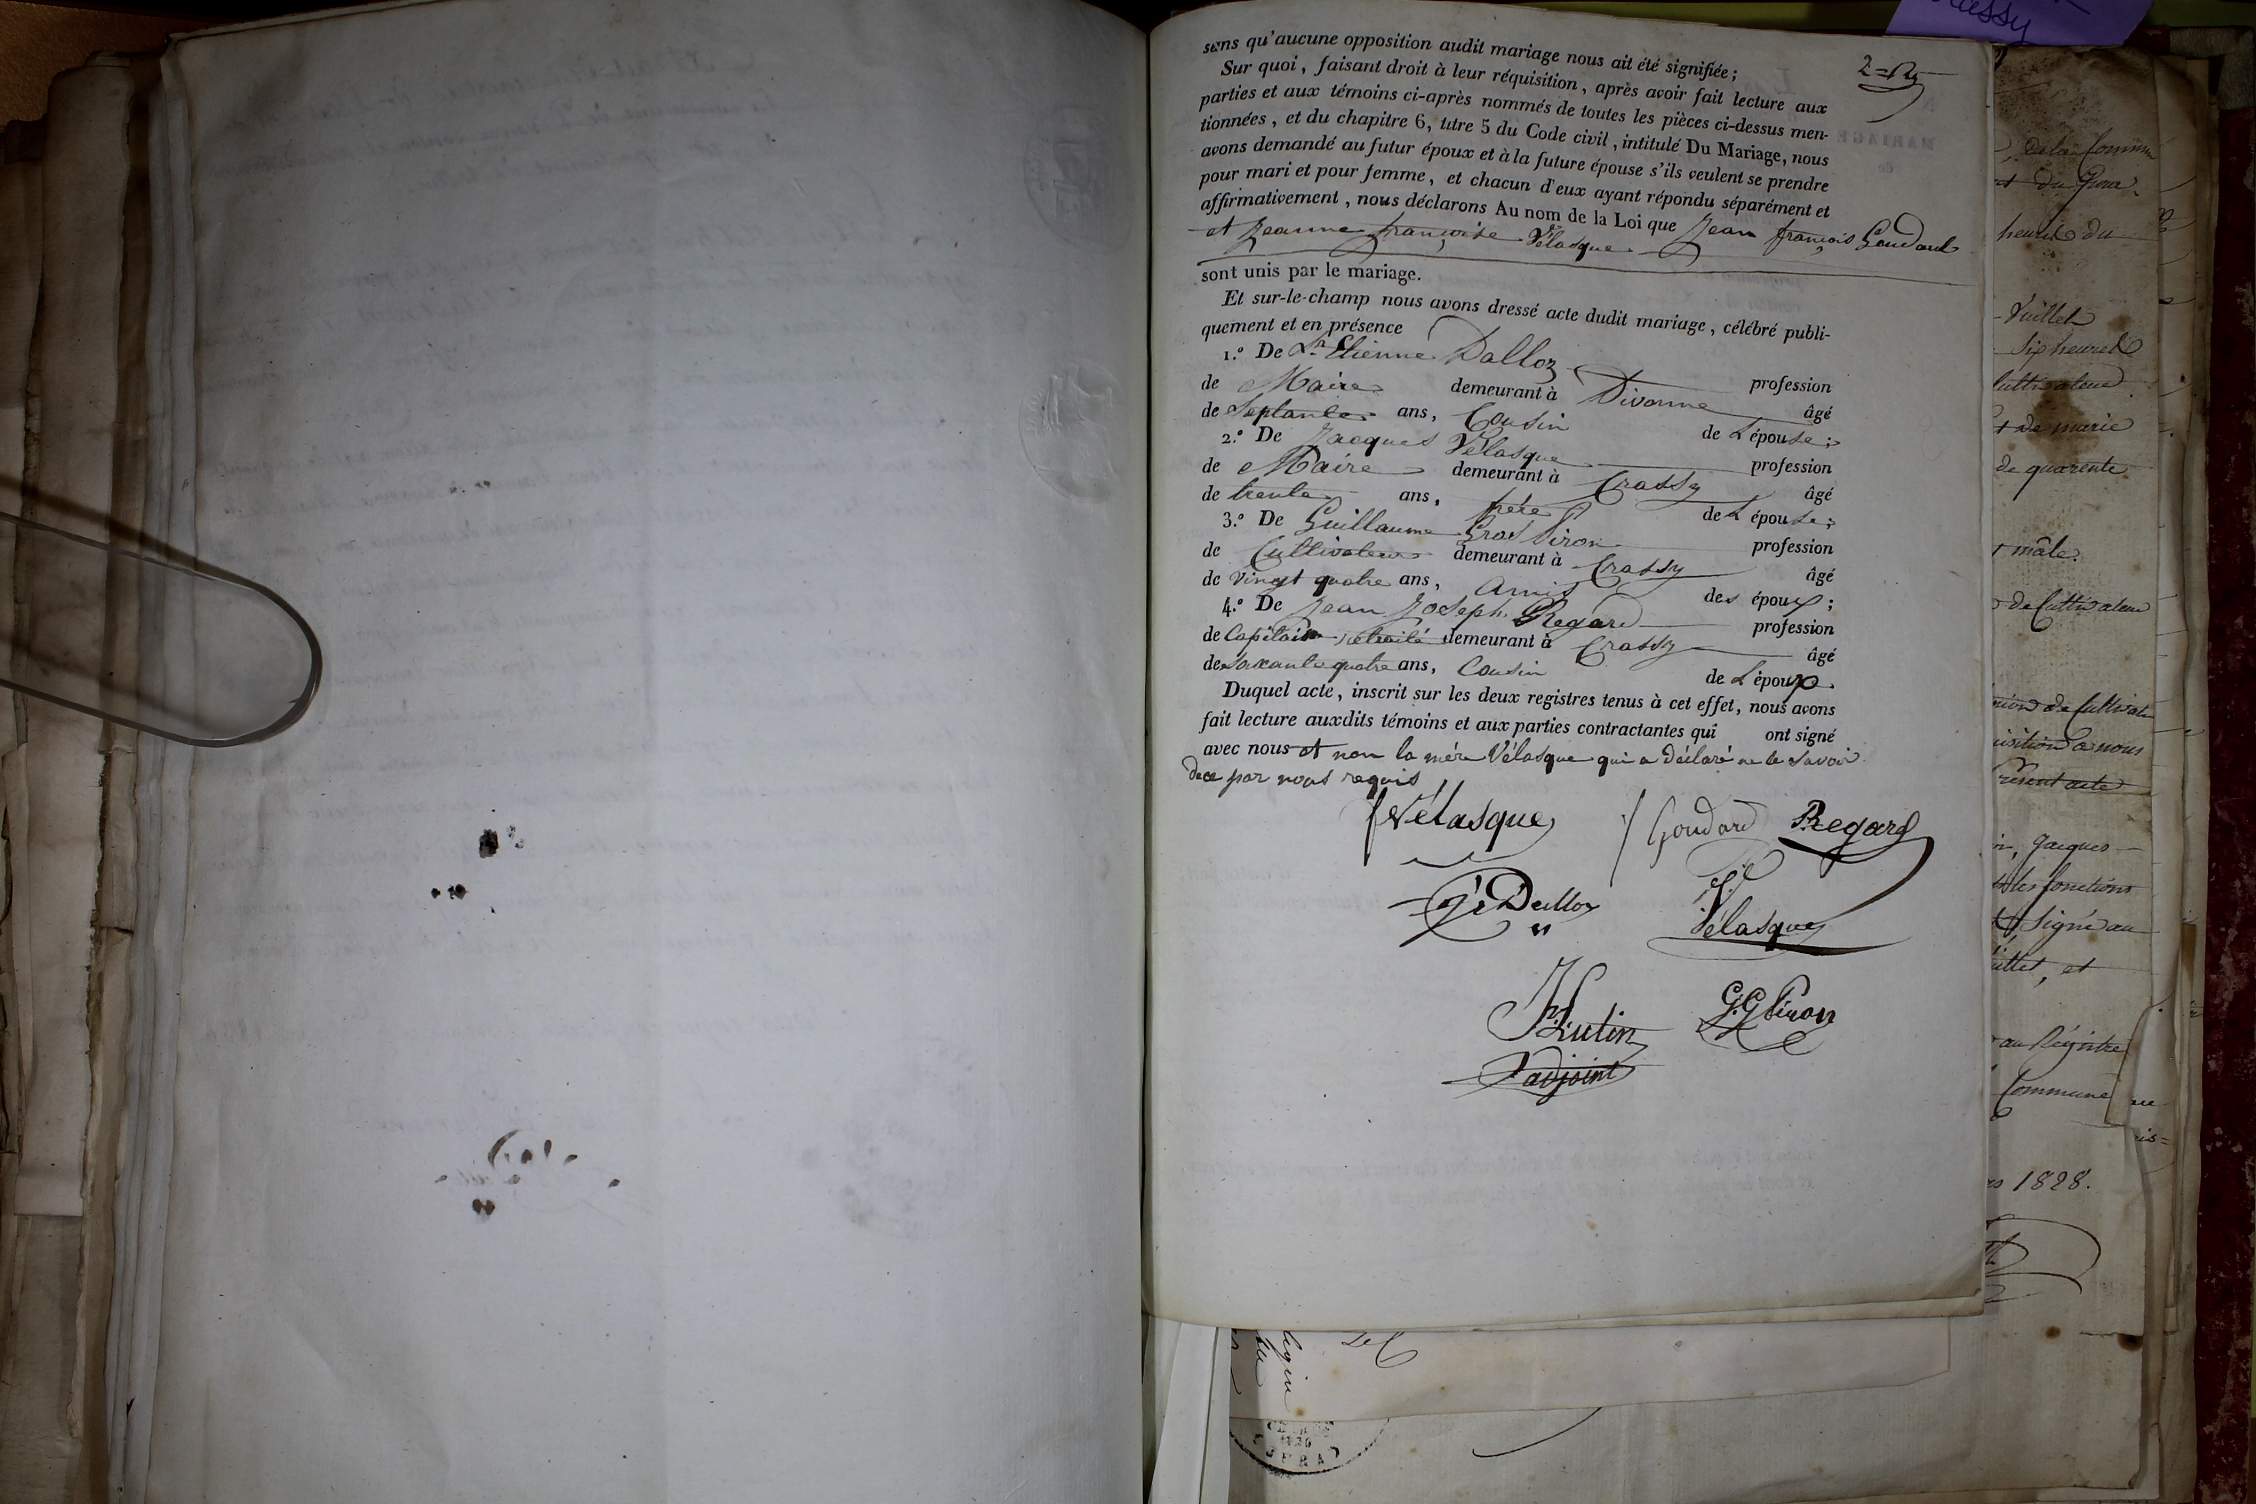 sans qu'aucune opposition audit mariage nous ait été signifiée;
Sur quoi, faisant droit à leur réquisition, après avoir fait lecture aux
parties et aux témoins ci-après nommés de toutes les pièces ci-dessus men-
tionnées, et du chapitre 6, titre 5 du Code civil, intitulé Du Mariage, nous
avons demandé au futur époux et à la future épouse s'ils veulent se prendre
pour mari et pour femme, et chacun d'eux ayant répondu séparément et
affirmativement, nous déclarons Au nom de la Loi que Jean françois Goudard
et Jeanne françoise Vélasque
sont unis par le mariage.
Et sur-le-champ nous avons dressé acte dudit mariage, célébré publi-
quement et en présence
1.º De Sr. Etienne Dalloz profession
de Maire demeurant à Divonne âgé
de Septante ans, Cousin de L'épouse;
2.º De Jacques Vélasque profession
de Maire demeurant à Crassy âgé
de trente ans, frère de L'épouse;
3.º De Guillaume Gros Piron profession
de Cultivateur demeurant à Crassy âgé
de vingt quatre ans, Amis des époux;
4.º De Jean Joseph Regard profession
de Capitaine retraité demeurant à Crassy âgé
de soixante quatre ans, Cousin de L'époux.
Duquel acte, inscrit sur les deux registres tenus à cet effet, nous avons
fait lecture auxdits témoins et aux parties contractantes qui ont signé
avec nous et non la mère Vélasque qui a déclaré ne le savoir
de ce par nous requis
Vélasque
Goudard Regard
Dalloz
Vélasque
Lutin
G. G Piron
adjoint
Crassy
de la Commune
heures du
Juillet
Six heures
Cultivateur
et de marie
de quarente
mâle.
de Cultivateur
de Cultivateur
a nous
Présent acte
Jacques
les fonctions
Signé au
Juillet, et
au Régistre
Commune
1828.